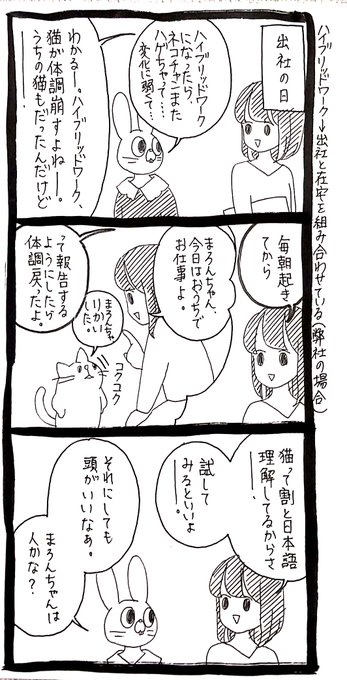 ハイブリッドワーク→出社と在宅を組み合わせている(弊社の場合)
出社の日
ハイブリッドワーク
になったら、
ネコチャンまた
ハゲちゃって…
変化に弱くて…
わかるー。ハイブリッドワーク、
猫が体調崩すよねー。
うちの猫もだったんだけど
毎朝起き
てから
まろんちゃん、
今日はおうちで
お仕事よ。
まろんちゃ
りかい
した。
コクコク
って報告する
ようにしたら
体調戻ったよ。
猫って割と日本語
理解してるからさ
試して
みるといいよー。
それにしても
頭がいいなぁ。
まろんちゃんは
人かな?